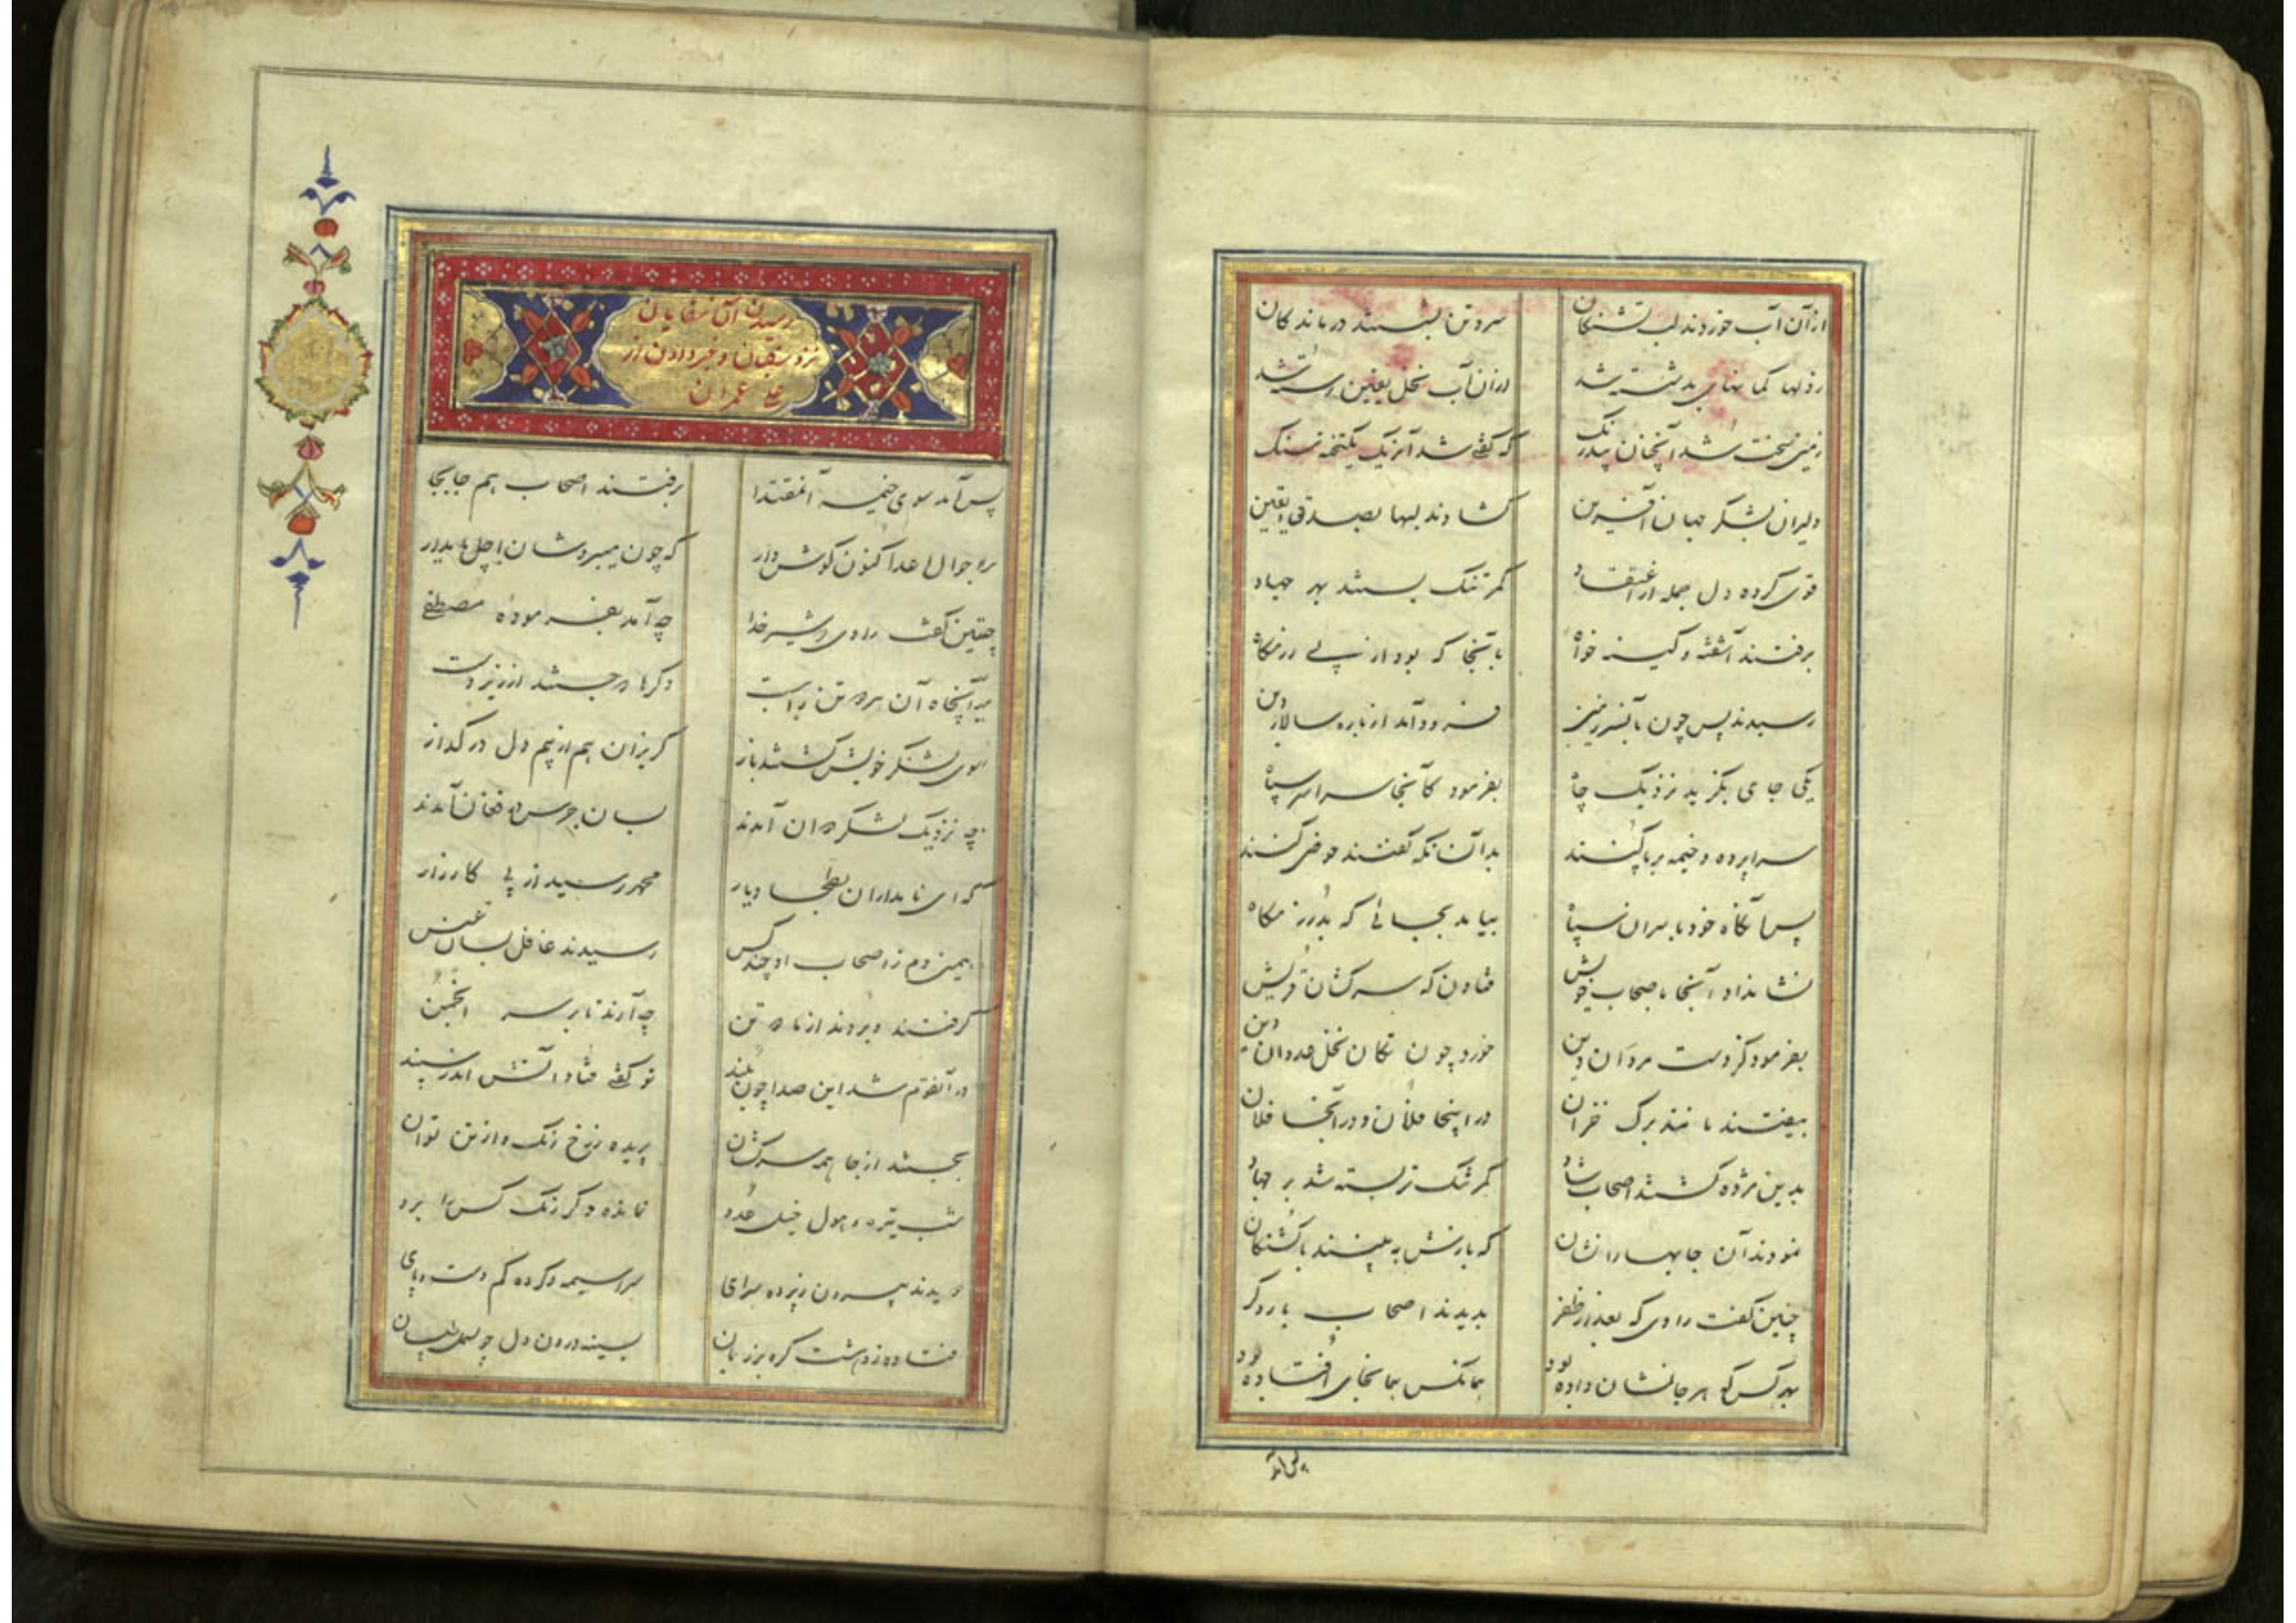 ازآن آب خوردند لب تشنگان سر و تن بشستند درماندگان
ز دلها گمانهای بد شسته شد از آن آب نخل یقین رسته شد
زمین سخت شد آنچنان بیدرنگ که گفتی شد آنریگ یکتخته سنگ
دلیران بشکر جهان آفرین گشادند لبها بصدق و یقین
قوی کرده دل جمله از اعتقاد کمر تنگ بستند بهر جهاد
برفتند آشفته و کینه خواه بآنجا که بود از پی رزمگاه
رسیدند پس چون بآنسرزمین فرود آمد از باره سالار دین
یکی جای بگزید نزدیک چاه بفرمود کآنجا سراسر سپاه
سراپرده و خیمه برپا کنند بدآنسانکه گفتند حوضی کنند
پس آنگاه خود با سران سپاه بیامد بجائی که بد رزمگاه
نشانداد آنجا باصحاب خویش فتادن که سرکشان قریش
بفرمود کز دست مردان دین خورد چون تکان نخل عدوان دین
بیفتند مانند برگ خزان در اینجا فلان و در آنجا فلان
بدین مژده گشتند اصحاب شاد کمر تنگ تر بسته شد بر جهاد
نمودند آن جایها را نشان که بازش به بینند با کشتگان
چنین گفت راوی که بعد از ظفر بدیدند اصحاب بار دگر
بهر کس کو هر جا نشان داده بود همانکس بمانجای افتاده بود
پس آمد
رسیدن آن سقایان
نزد سقیان و خبر دادن از
علی عمران
پس آمد سوی خیمه آنمقتدا برفتند اصحاب هم جابجا
بر احوال اعدا کنون گوش دار که چون میبردشان اجل مایدار
چنین گفت راوی که شیر خدا چه آمد بفرموده مصطفی
سوی لشکر خویش گشتند باز گریزان هم از بیم دل در گداز
چه نزدیک لشکر دوان آمدند بسان جرس در فغان آمدند
که ای نامداران بطحا دیار محمد رسید از پی کارزار
همین دم ز اصحاب او چند کس رسیدند غافل بسان عسس
گرفتند و بردند از ما دو تن چه آرند تا بر سر انجمن
در آنقوم شد این صدا چون بلند تو گفتی فتاد آتش اندر سپند
بجستند از جا همه سرکشان پریده ز رخ رنگ و از تن توان
شب تیره و هول خیل عدو نمانده دگر رنگ کس را برو
دویدند بیرون ز پرده سرای سراسیمه و کرده گم دست و پای
فتاده ز دهشت گره بر زبان بسینه درون دل چو بسمل طپان